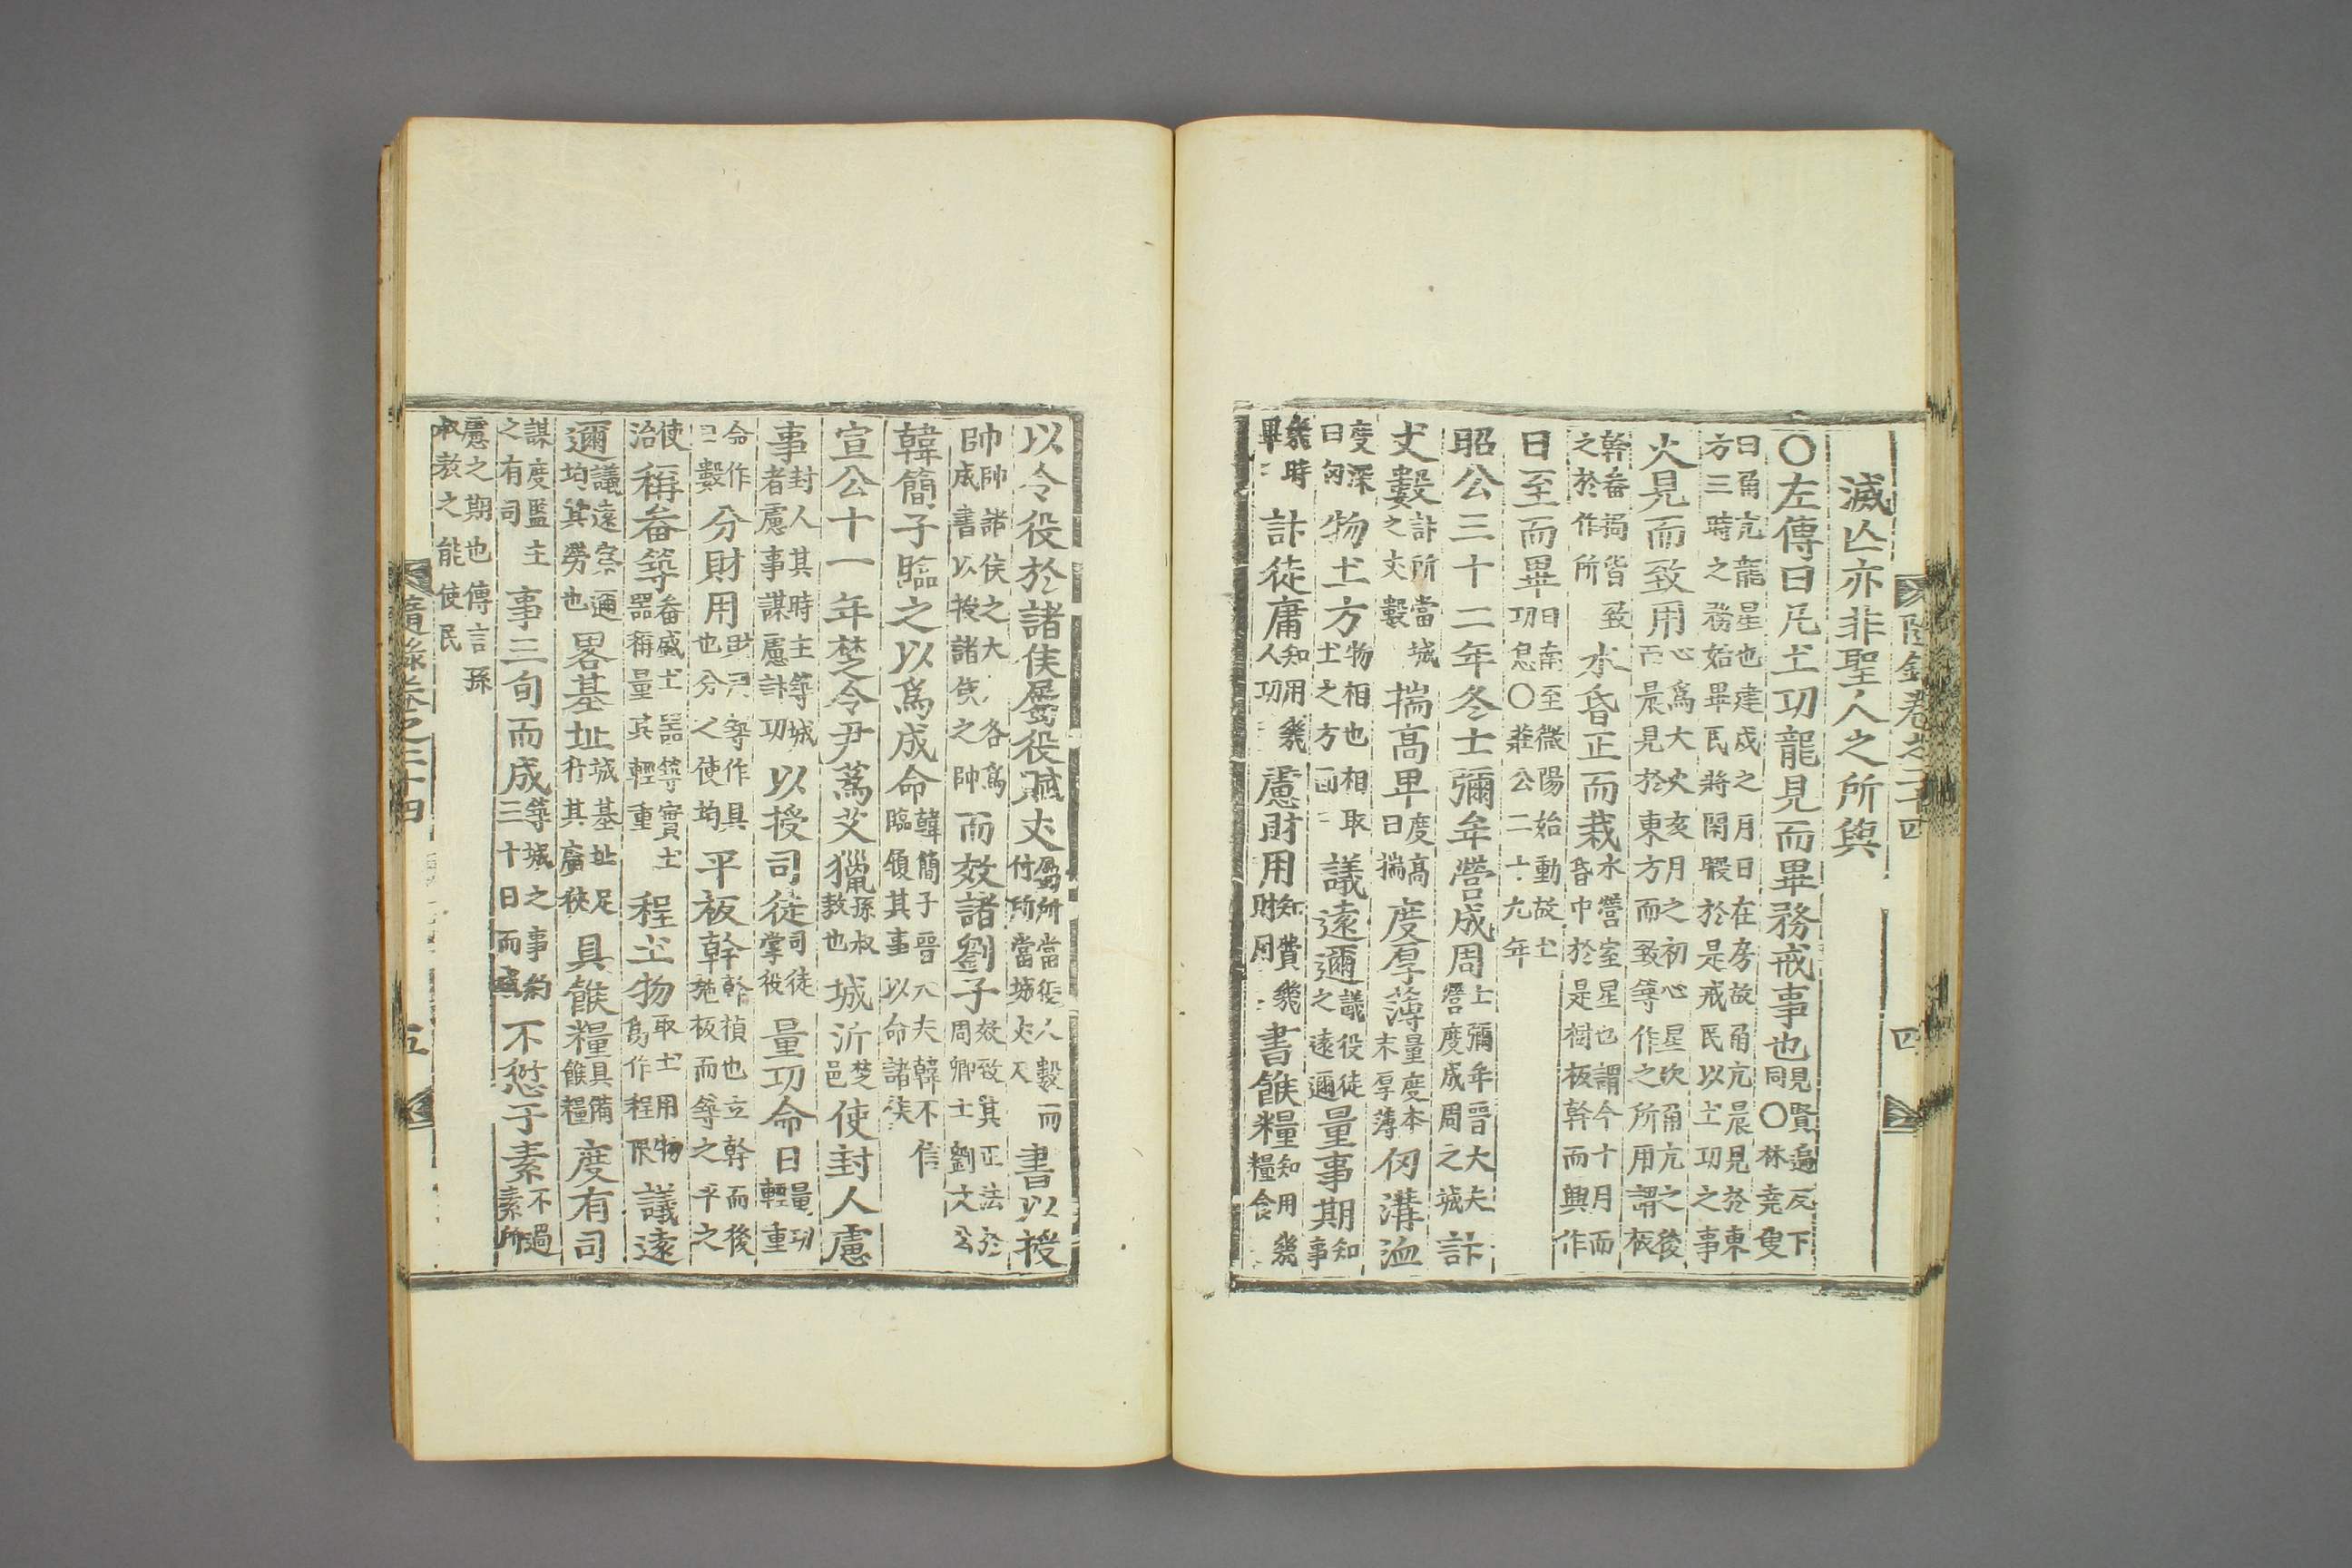 隨錄卷之二十四 四
滅亡亦非聖人之所與
〇左傳曰凡土功龍見而畢務戒事也見賢遍反下同〇林堯叟
曰角亢龍星也建戌之月日在房故角亢晨見於東
方三時之務始畢民將閑暇於是戒民以土功之事
火見而致用心爲大火亥月之初心星次角亢之後
而晨見於東方而致築作之所用謂板
幹畚挶皆致
之於作所水昏正而栽水營室星也謂今十月而
昏中於是樹板幹而興作
日至而畢日南至微陽始動故土
功息〇莊公二十九年
昭公三十二年冬士彌牟營成周士彌牟晉大夫
營度成周之城計
丈數計所當城
之丈數揣高卑度高
曰揣度厚薄量度本
末厚薄仞溝洫
度深
曰仞物土方物相也相取
土之方面議遠邇議役徒
之遠邇量事期知
事
幾時
畢計徒庸知用幾
人功慮財用知費幾
財用書餱糧知用幾
糧食
以令役於諸侯屬役賦丈屬所當役人數而
付所當城丈尺書以授
帥帥諸侯之大夫各爲
成書以授諸侯之帥而效諸劉子效致其正法於
周卿士劉文公
韓簡子臨之以爲成命韓簡子晉大夫韓不信
臨領其事以命諸侯
宣公十一年楚令尹蔿艾獵孫叔
敖也城沂楚
邑使封人慮
事封人其時主築城
者慮事謀慮計功以授司徒司徒
掌役量功命日量功
輕重
命作
日數分財用財用築作具
也分之使均平板幹幹楨也立幹而後
施板而築之平之
使
治稱畚築畚盛土器築實土
器稱量其輕重程土物取土用物
爲作程限議遠
邇議遠邇
均其勞也畧基址城基址足
行其廣狹具餱糧具備
餱糧度有司
謀度監主
之有司事三旬而成築城之事約
三十日而成不愆于素不過
素所
慮之期也傳言孫
叔敖之能使民
隨錄卷之二十四 五